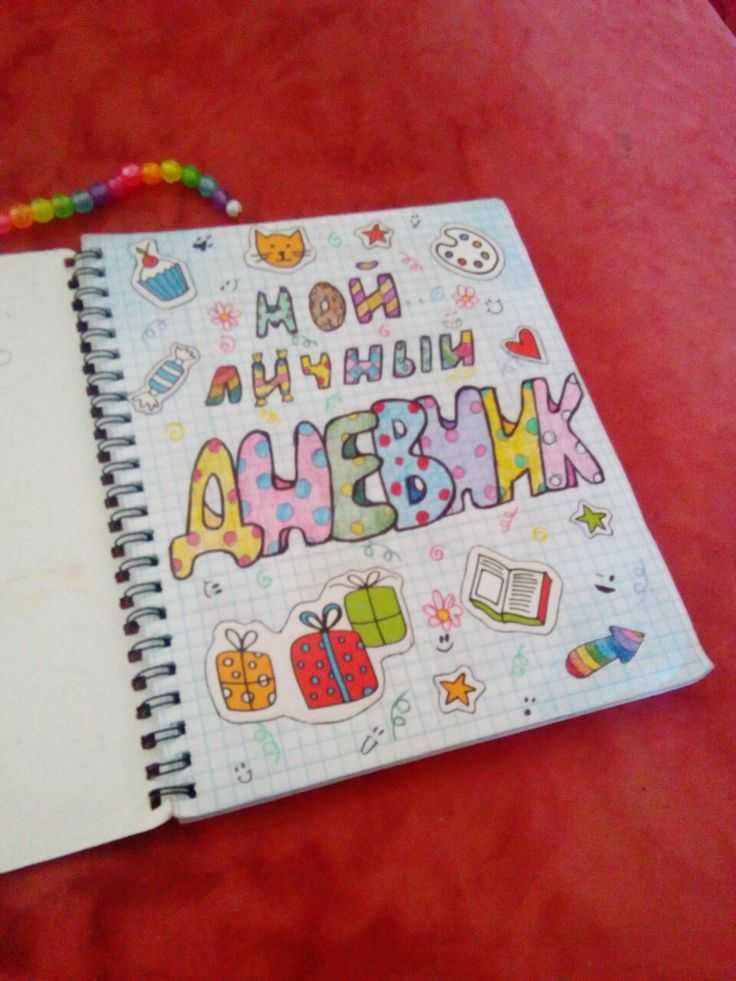 МОЙ
ЛИЧНЫЙ
ДНЕВНИК